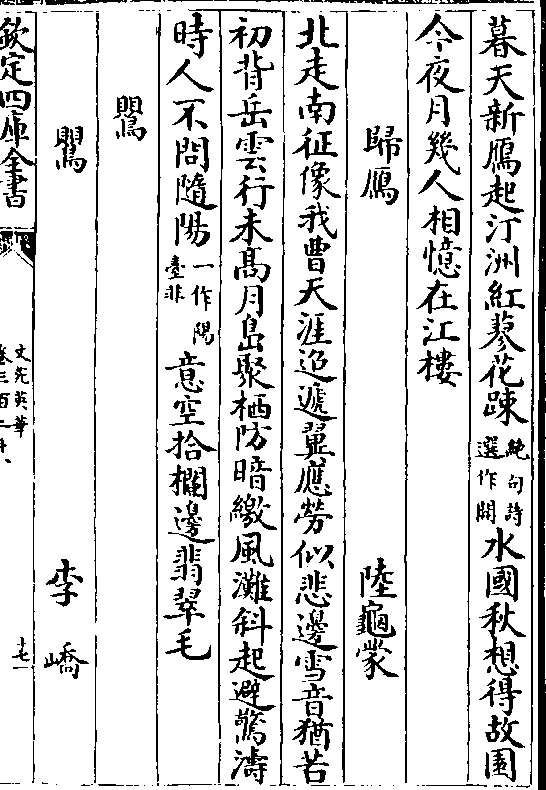 暮天新鴈起汀洲紅蓼花踈絶句詩選作開水國秋想得故園
今夜月幾人相憶在江樓
歸鴈 陸龜蒙
北走南征像我曹天涯迢遞翼應勞似悲邊雪音猶苦
初背岳雲行未髙月島聚栖防暗繳風灘斜起避驚濤
時人不問隨陽一作陽臺非意空拾欄邊翡翠毛
鸎
鸎 李嶠
欽定四庫全書
文苑英華
卷三百二十八
十七